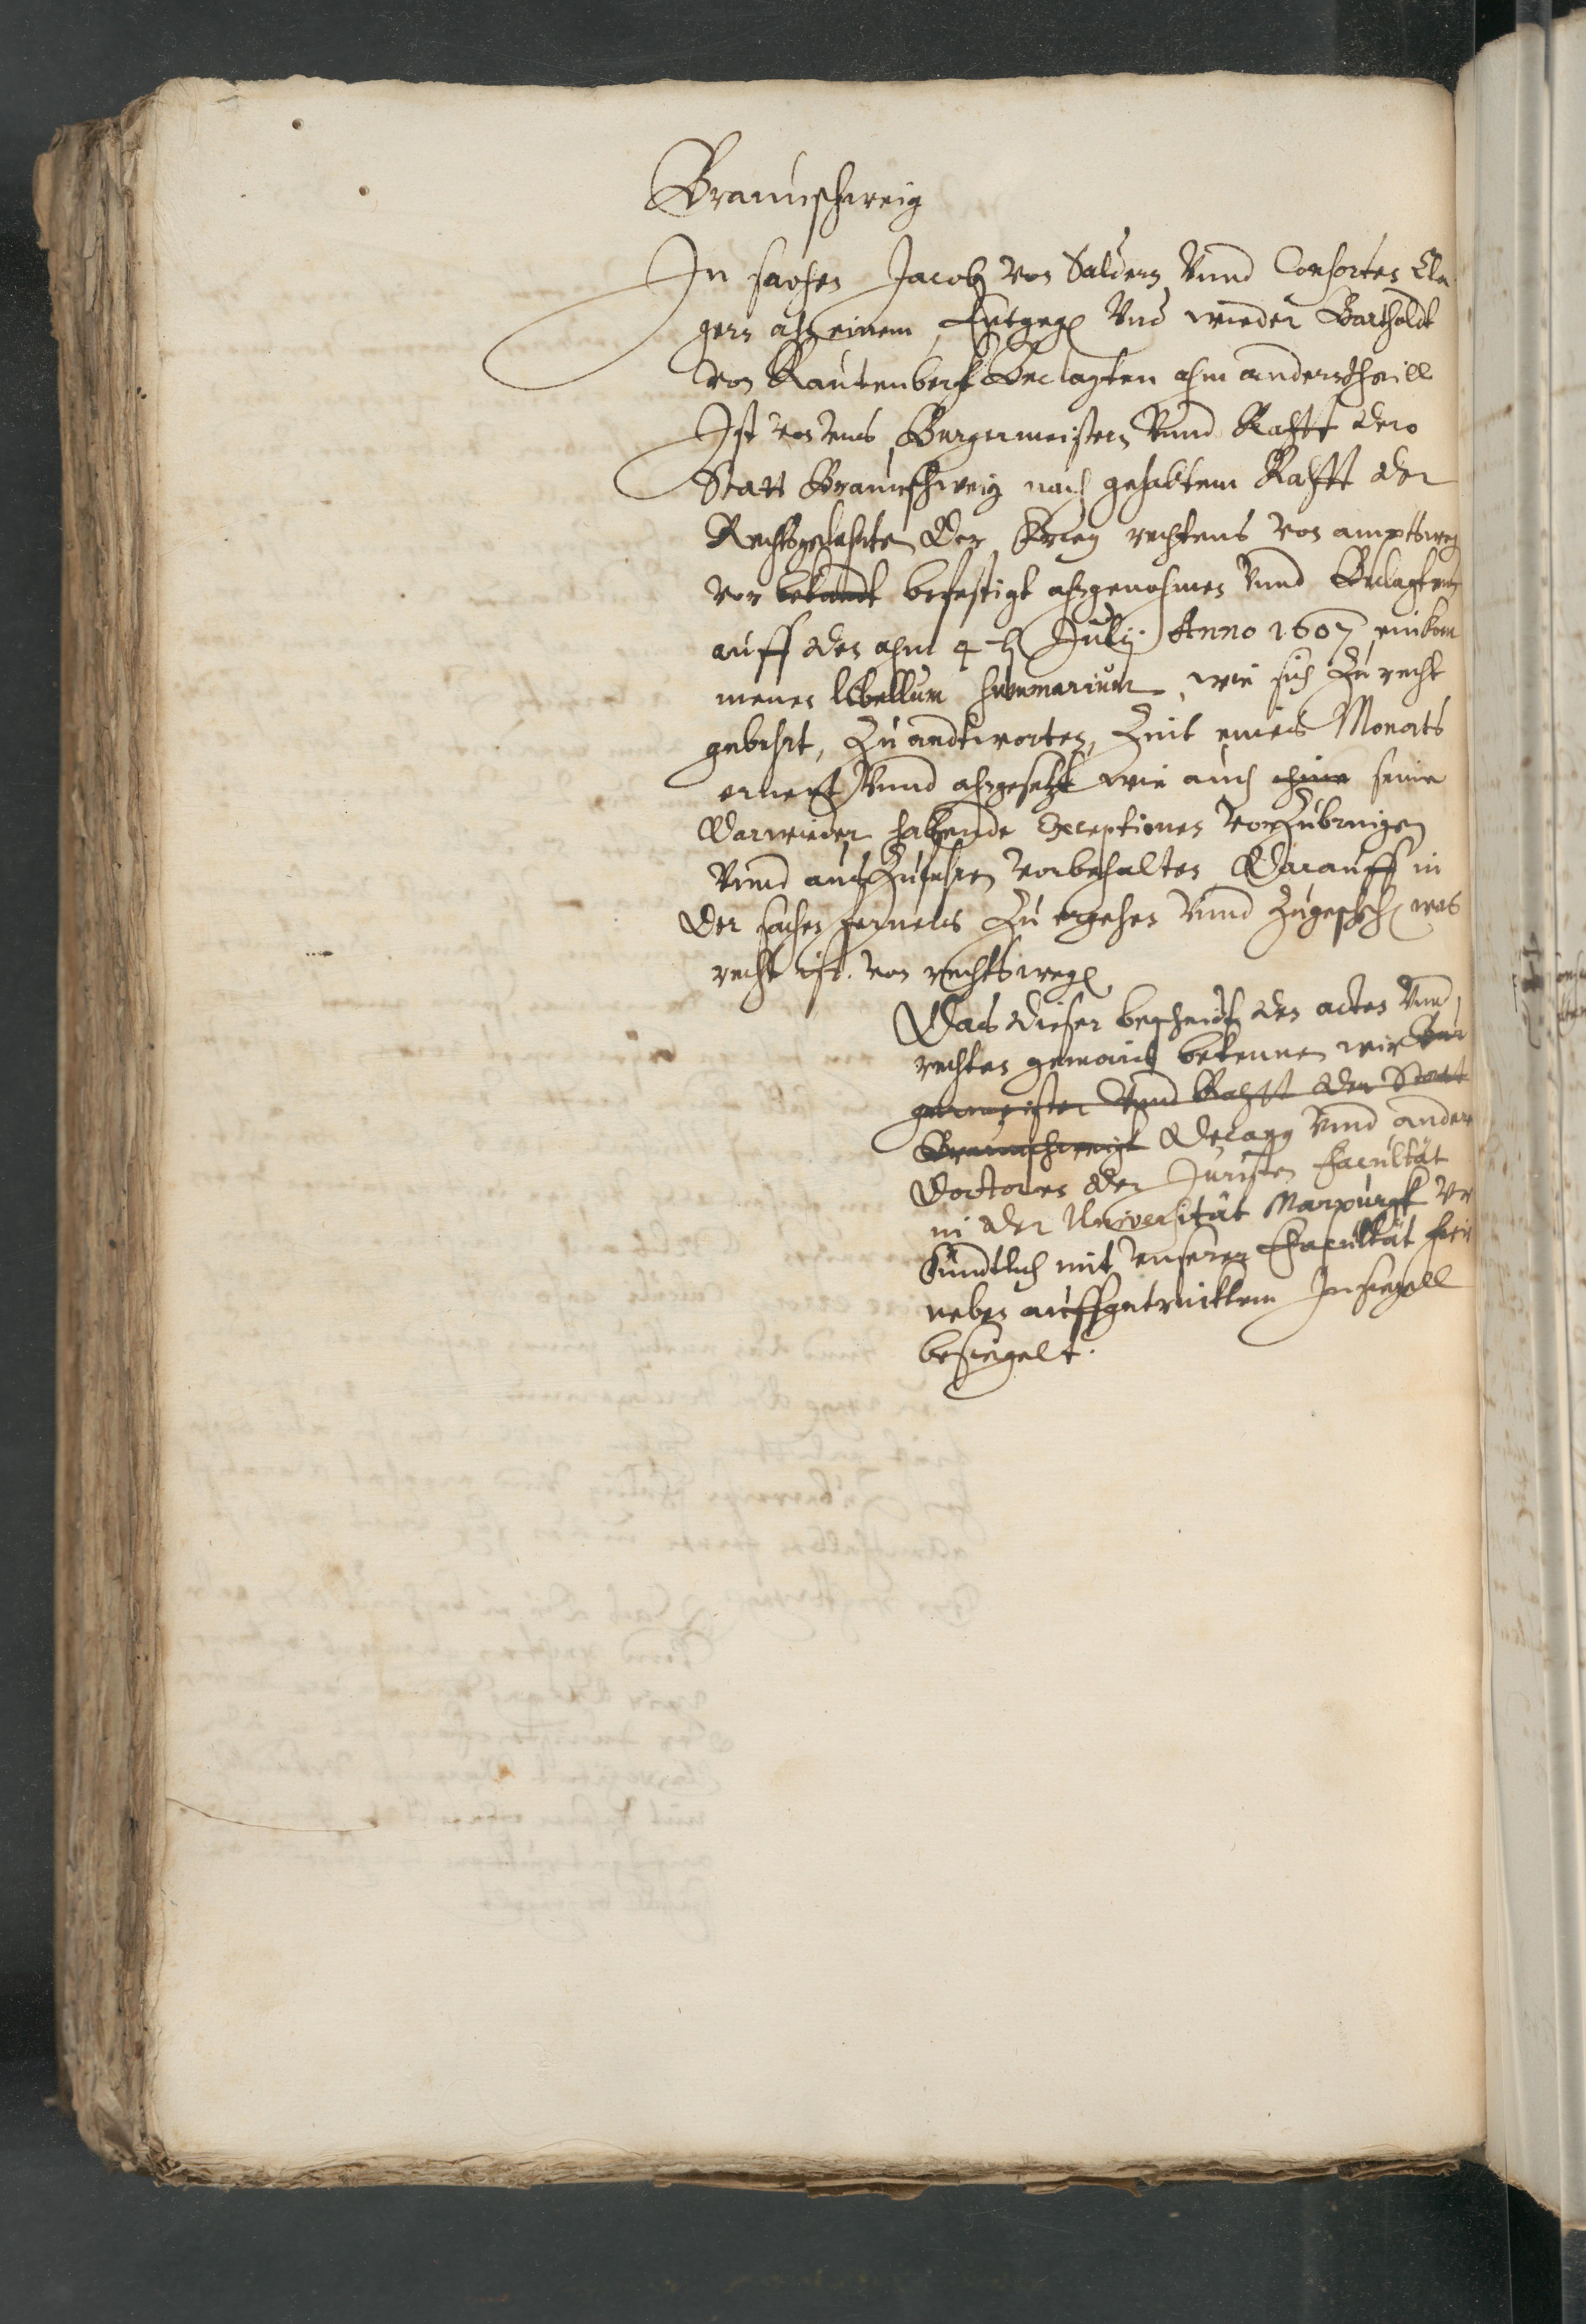 Braunschweig
In sachen Jacob von Saldern Vnnd Consorten Cle-
gern ahn einem, Entgegen Vnd wieder Bartholdt
von Rautenbergk Beclagten ahm andern theill
Ist von vns Burgermeistern Vnnd Rahtt dero
Statt Braunschweig nach gehabtem Rahtt der
Rechtsgelehrten der Krieg rechtens von amptsweg
vor bekandt befestigt ahngenohmen Vnnd Beclagten
auff den ahm 4ten Julij Anno 1607 einkom
menen libellum summarium, wie sich Zu recht
gebehrt, Zu andtworten, Zeit eines Monats
ernent Vnnd ahngesetzt wie auch ihme seine
darwieder habende Exceptiones vorZubringen
Vnnd ausZufuhren vorbehalten Darauff in
der sachen ferners Zu ergehen Vnnd Zugeschehen was
recht ist. von rechtswegen
Das dieser bescheidt den acten Vnnd
rechten gemeeß bekennen wir Bur
germeister Vnnd Rahtt der Statt
Braunschweigk Decann Vnnd andere
Doctores der Juristen Facultät
in der Universität Marpurgk Vr
kundtlich mit vnserer Facultät hie
neben auffgetrucktem Insiegell
besiegelt.